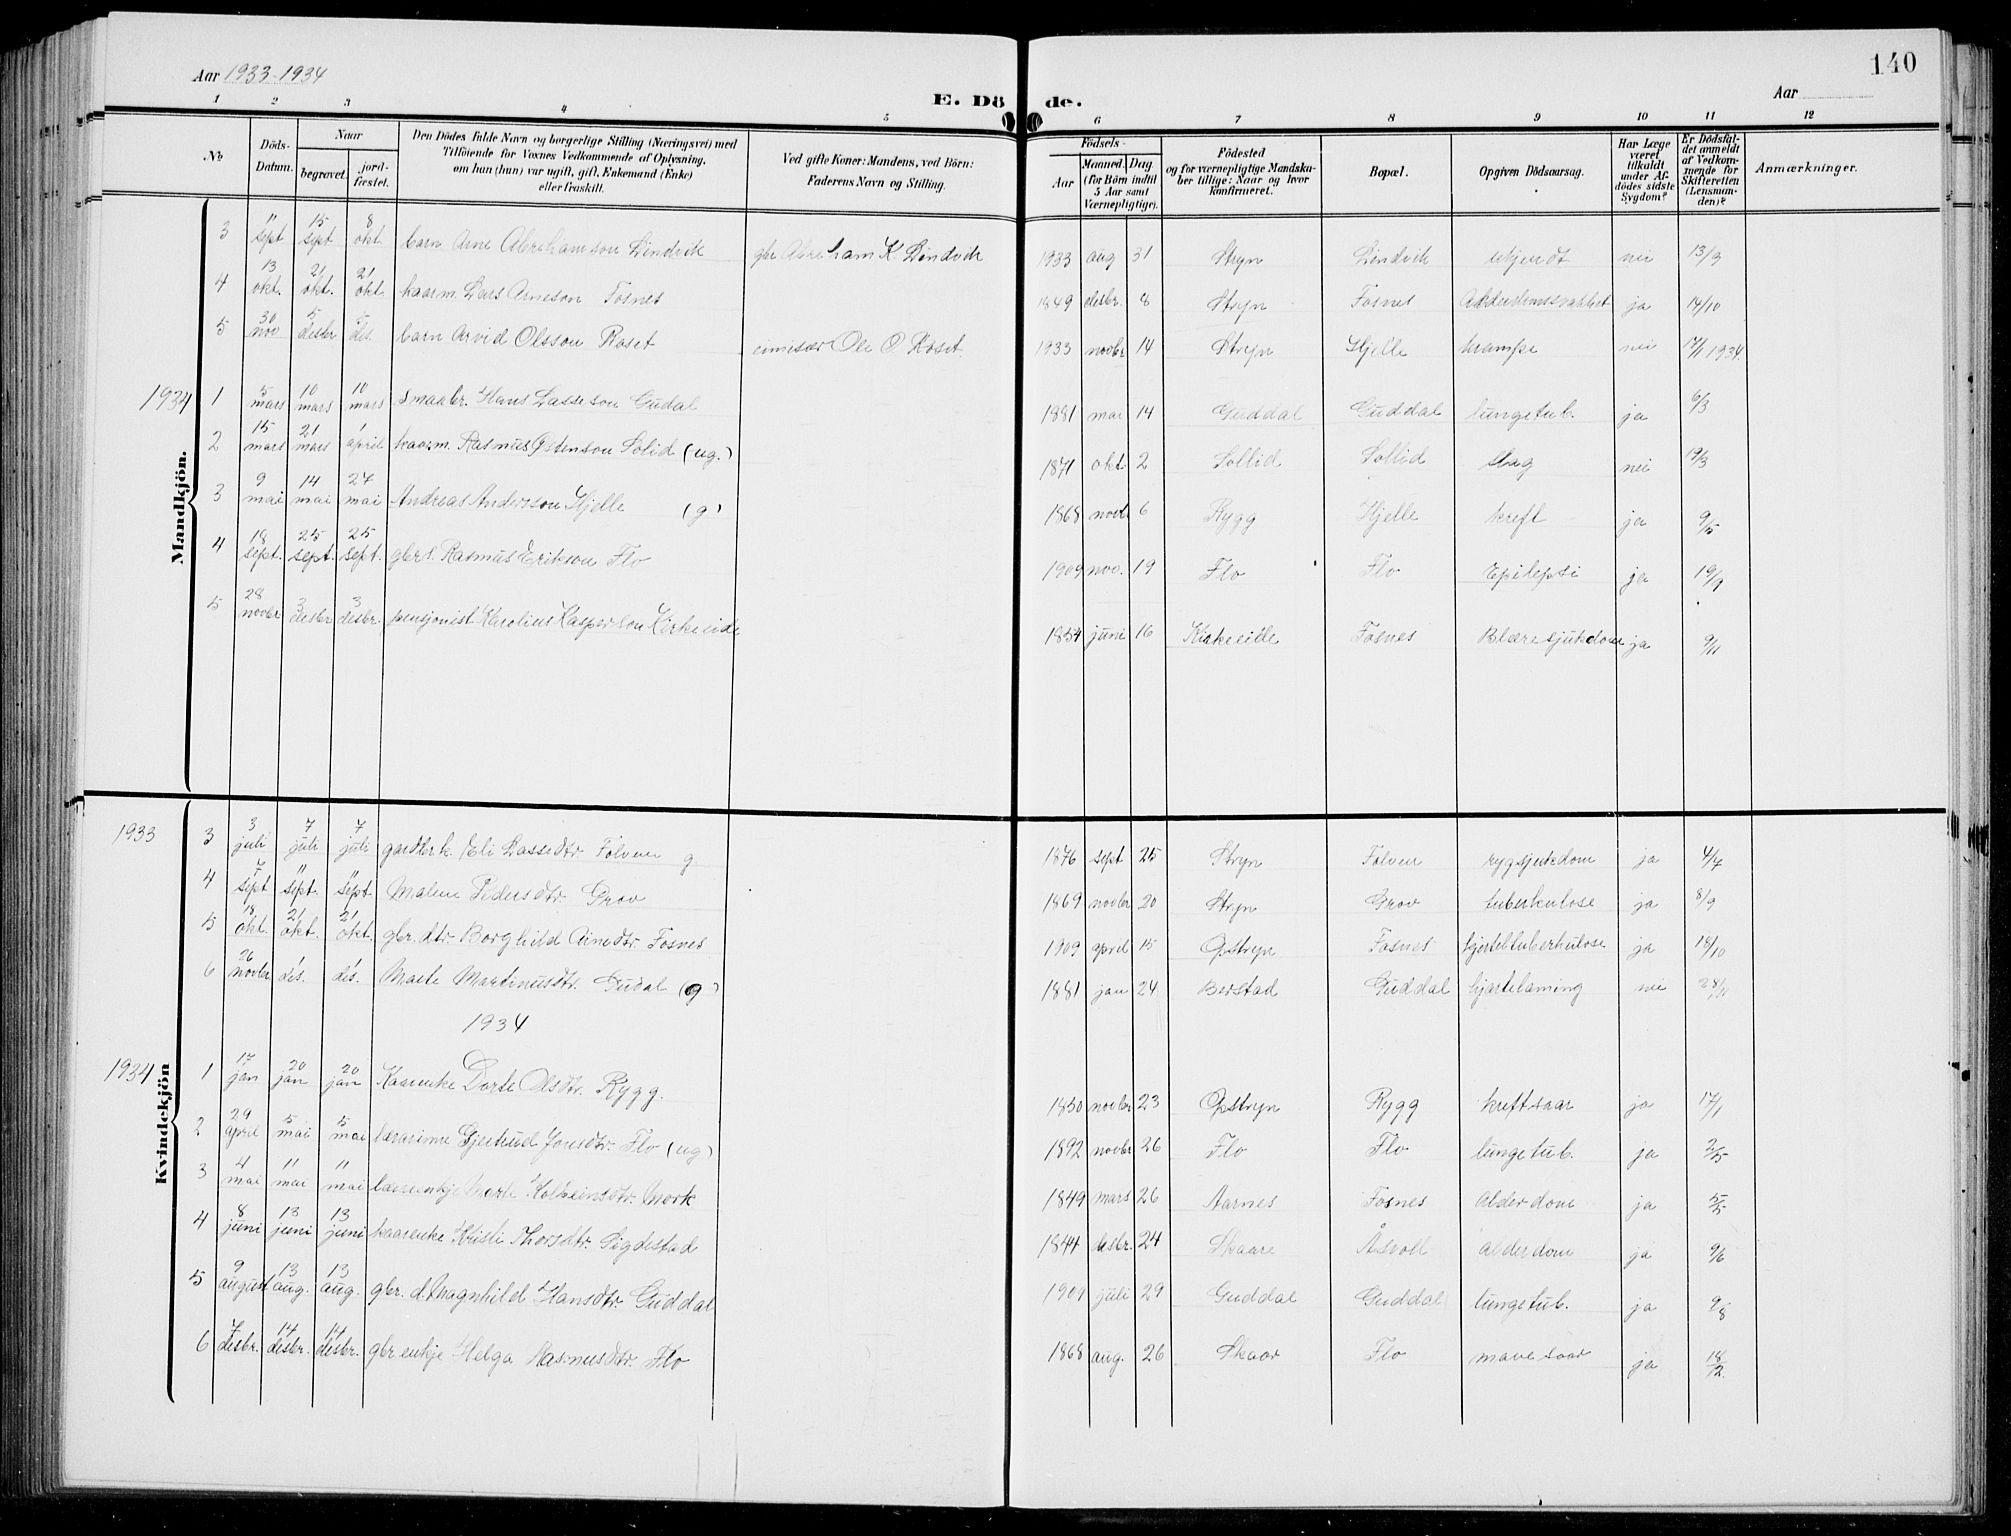 Aar 1933-1934
140
E. Dö de.
Aar
1 2 3 4 5 6 7 8 9 10 11 12
No
Döds-Datum.
Naar
begravet.
jord-fæstet.
Den Dödes fulde Navn og borgerlige Stilling (Næringsvei) med
Tilföiende for Voxnes Vedkommende af Oplysning,
om han (hun) var ugift, gift, Enkemand (Enke)
eller fraskilt.
Ved gifte Koner: Mandens, ved Börn:
Faderens Navn og Stilling.
Födsels-
Aar
Maaned. Dag
(for Börn indtil
5 Aar samt
Værnepligtige).
Födested
og for værnepligtige Mandska-
ber tillige: Naar og hvor
konfirmeret.
Bopæl.
Opgiven Dödsaarsag.
Har Læge
været
tilkaldt
under Af-
dödes sidste
Sygdom?
Er Dödsfal-
det anmeldt
af Vedkom-
mende for
Skifteretten
(Lensman-
den)?
Anmærkninger.
Mandkjön.
3 11 sept 15 sept 8 okt. barn Arne Abrahamson Lindvik gbr Abraham K Lindvik 1933 aug 31 Stryn Lindvik ukjendt nei 13/9
4 13 okt. 21 okt. 21 okt kaarm. Lars Arneson Fosnes 1849 desbr. 8 Stryn Fosnes ja 14/10
5 30 nov 5 desbr 5 des. barn Arvid Olsson Roset Ole O. Roset. 1933 novbr 14 Stryn Hjelle krampe nei 17/1 1934
1934 1 5 mars 10 mars 10 mars smaabr. Hans Lasseson Gudal 1881 mai 14 Guddal Guddal lungetub. ja 6/3
2 15 mars 21 mars 1 april kaarm. Rasmus Østenson Solid (ug.) 1871 okt 2 Sollid Sollid slag nei 19/3
3 9 mai 14 mai 27 mai Andreas Andersson Hjelle (g) 1868 novbr 6 Rygg Hjelle kreft ja 9/5
4 18 sept. 25 sept. 25 sept. gbrs. Rasmus Erikson Flo 1909 nov. 19 Flo Flo Epilepsi ja 19/9
5 28 novbr 3 desbr 3 desbr. pensjonist Karolius Kasperson Kirkeeide 1854 juni 16 Kirkeeide Fosnes Blæresjukdom ja 9/11
1933 3 3 juli 7 juli 7 juli gardbrk. Eli Lassedtr Folven g 1876 sept 25 Stryn Folven rygsjukdom ja 4/7
4 7 sept 11 sept. 11 sept. Malene Pedersdtr. Grov 1869 novbr 20 Stryn Grov tuberkulose ja 8/9
5 18 okt. 21 okt. 21 okt. gbr.dtr. Borghild Arnedtr. Fosnes 1909 april 15 Opstryn Fosnes ja 18/10
6 26 novbr 1 des. 1 des. Marte Martinusdtr. Gudal (g) 1881 jan 24 Berstad Guddal hjartelaming nei 28/11
1934
Kvindekjön
1934 1 17 jan 20 jan 20 jan Kaarenke Dorte Olsdtr. Rygg. 1850 novbr 23 Opstryn Rygg kreftsaar ja 17/1
2 29 april 5 mai 5 mai lærarinne Gjertrud Jonsdtr. Flo (ug) 1892 novbr 26 Flo Flo lungetub. ja 2/5
3 4 mai 11 mai 11 mai Marte Kolbeinsdtr. Mork 1849 mars 26 Aarnes Fosnes alderdom ja 5/5
4 8 juni 13 juni 13 juni kaarenke Kristi Thorsdtr. Sigdestad 1844 desbr. 24 Skaare Åsvoll alderdom ja 9/6
5 9 august 13 aug. 13 aug. gbr.d. Magnhild Hansdtr. Guddal 1901 juli 29 Guddal Guddal lungetub. ja 9/8
6 7 desbr. 14 desbr. 14 desbr. gbr.enkje Helga Rasmusdtr. Flo 1868 aug. 26 Skaar Flo mavesaar ja 18/12